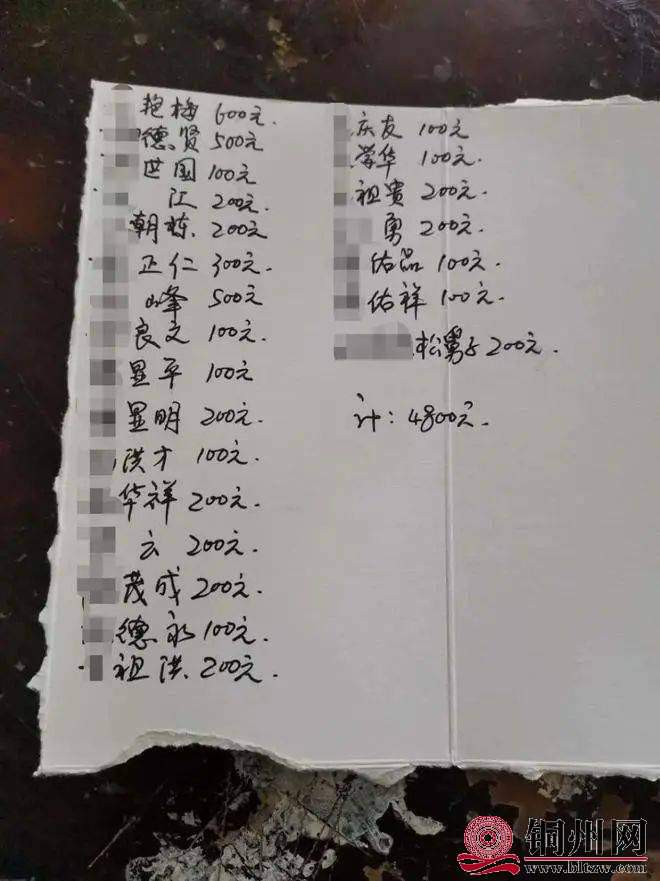 艳梅 600元.
德贤 500元
世国 100元
江 200元.
朝栋 200元
正仁 300元.
峰 500元
良文 100元.
显平 100元
显明 200元.
洪才 100元.
华祥 200元.
云 200元.
茂成 200元.
德永 100元.
祖洪 200元.
庆友 100元
荣华 100元.
祖贵 200元.
勇 200元.
佑品 100元.
佑祥 100元.
松舅子 200元.
计: 4800元.
铜州网
www.bltzw.com